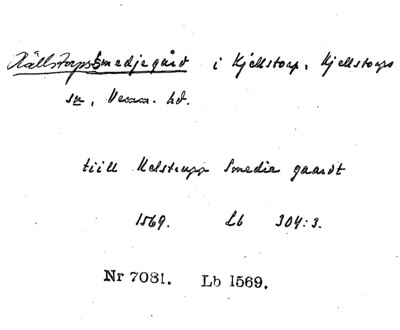 Källstorps Smedjegård i Kjellstorp, Kjellstorps
sn, Vemm. hd.
tiill Kelstrupp Smedie gaardt
1569. Lb 304:3.
Nr 7081. Lb 1569.